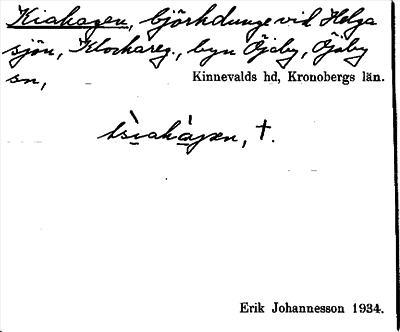 Kiahagen, björkdunge vid Helga
sjön, Klockareg., byn Öjaby, Öjaby
sn,
Kinnevalds hd, Kronobergs län.
tsìahàgən, †.
Erik Johannesson 1934.